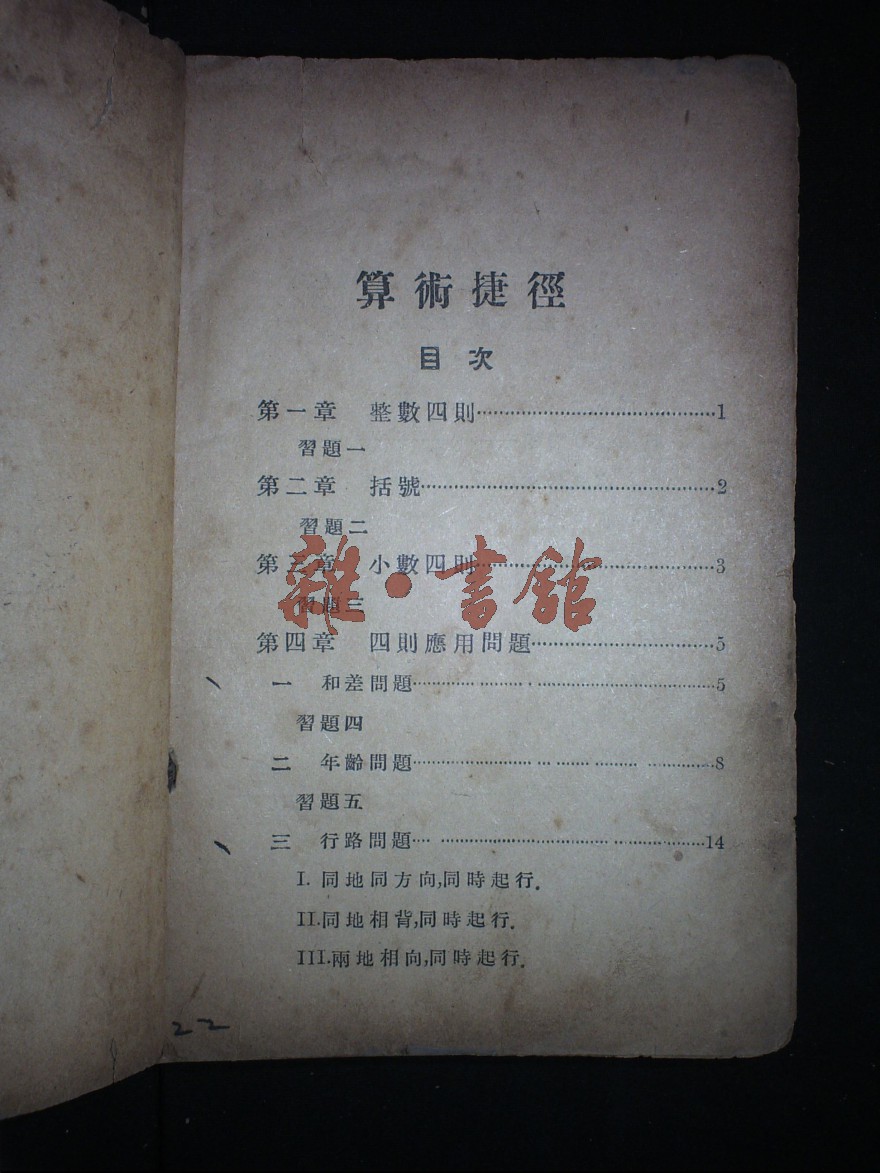 算術捷徑
目次
第一章 整數四則……………………………………1
習題一
第二章 括號……………………………………………2
習題二
第三章 小數四則……………………………………3
習題三
雜·書館
第四章 四則應用問題……………………………5
一 和差問題……………………………………………5
習題四
二 年齡問題……………………………………………8
習題五
三 行路問題……………………………………………14
I. 同地同方向,同時起行.
II.同地相背,同時起行.
III.兩地相向,同時起行.
22